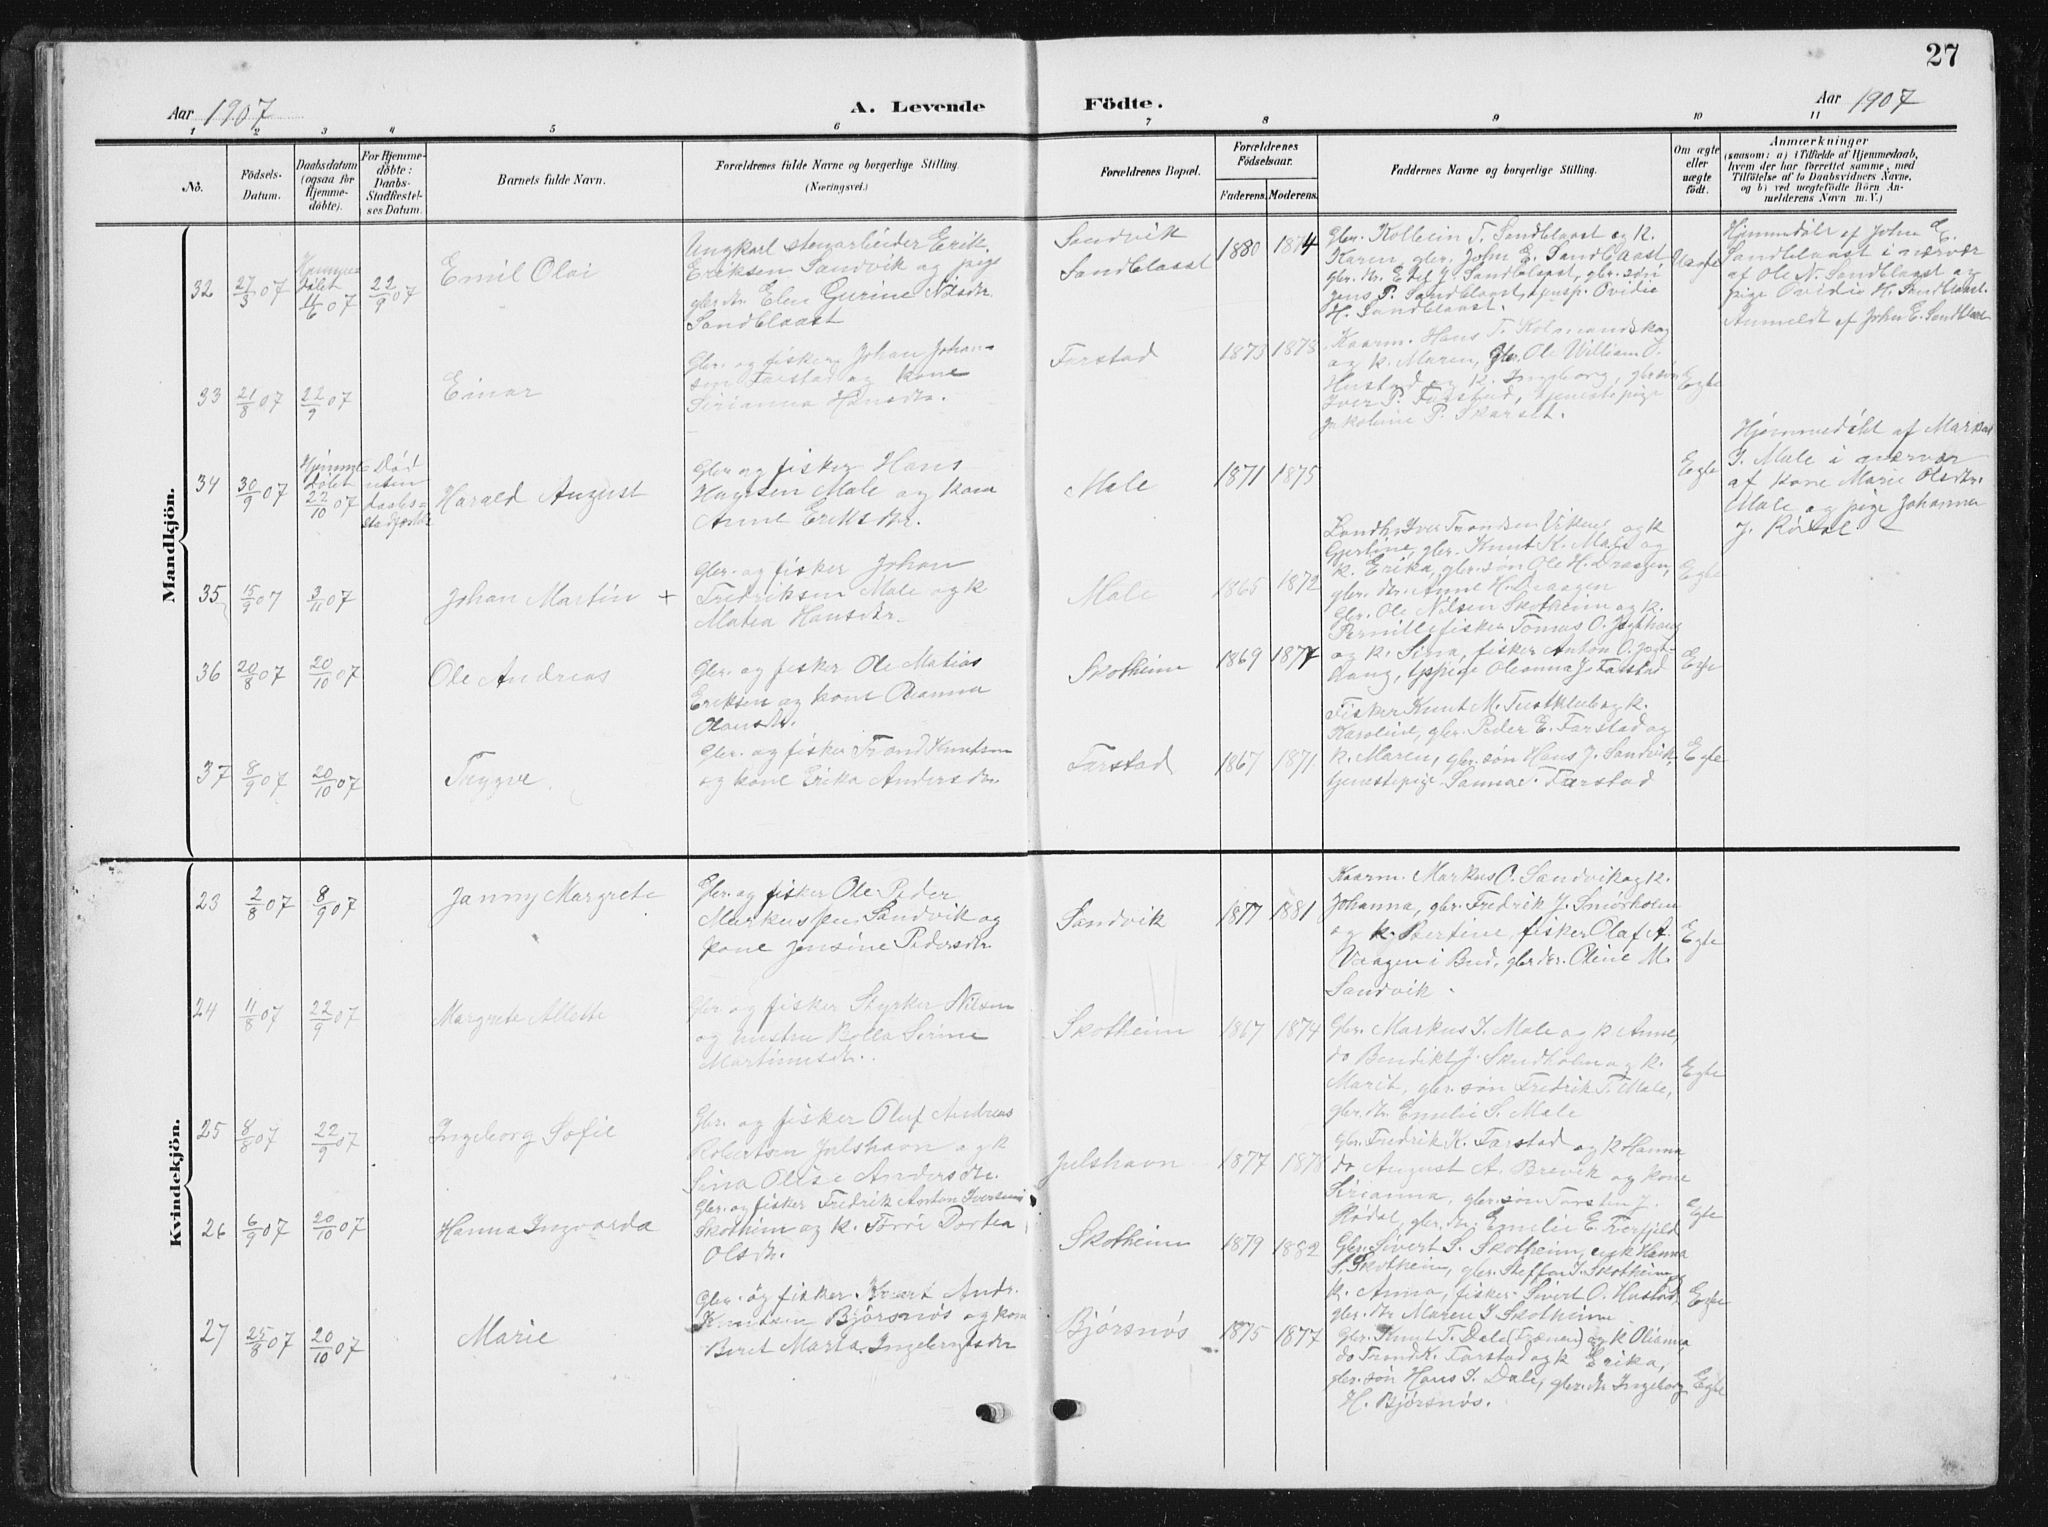 27
Aar 1907
A. Levende
Födte.
Aar 1907
1 2 3 4 5 6 7 8 9 10 11
No.
Födsels-Datum.
Daabsdatum (ogsaa for Hjemme-døbte).
For Hjemme-døbte: Daabs-Stadfestel-ses Datum.
Barnets fulde Navn.
Forældrenes fulde Navne og borgerlige Stilling
(Næringsvei.)
Forældrenes Bopæl.
Forældrenes Fødselsaar.
Faderens. Moderens.
Faddernes Navne og borgerlige Stilling.
Om ægte eller uægte født.
Anmærkninger
(saasom: a) i Tilfælde af Hjemmedaab,
hvem der har forrettet samme, med
Tilföielse af to Daabsvidners Navne,
og b) ved uægtefödte Börn An-
melderens Navn m. V.)
Mandkjön.
32
27/3 07
Hjemme
døbt
4/6 07
22/9 07
Emil Olai
Ungkarl stenarbeider Erik
Eriksen Sandvik og pige
gbr.dtr. Elen Gurine Nilsdtr.
Sandblaast
Sandvik
Sandblaast
1880 1874
Gbr. Kolbein T. Sandblaast og k.
Karen, gbr. John E. Sandblaast
gbr. dtr. Edel J. Sandblaast, gbr. søn
Jens P. Sandblaast, tjenesp. Ovidie
H. Sandblaast.
Uægte
Hjemmedøbt af John E.
Sandblaast i nærvær
af Ole N. Sandblaast og
pige Ovidie H. Sandblaast.
Anmeldt af John E. Sandblaast
33
21/8 07
22/9 07
Einar
Gbr. og fisker Johan Johan-
sen Farstad og kone
Sirianna Hansdtr.
Farstad
1873 1878
Kaarm. Hans T. Kolmandskog
og k. Maren, gbr. Ole William O.
Hustad og k. Ingeborg, gbr.søn
Iver P. Farstad, tjenestepige
Jakobine P. Skarset.
Egte
34
30/9 07
Hjemme
døbt
22/10 07
Død
uten
daabs-
stadfæstelse
Harald August
Gbr. og fisker Hans
Male og kone
Anne Eriksdtr.
Male
1871 1875
Egte
Hjemmedøbt af Markus
J. Male i nærvær
af kone Marie Olsdtr.
Male og pige Johanna
J. Rødal
35
15/9 07
3/11 07
Johan Martin +
Gbr. og fisker Johan
Fredriksen Male og k
Matea Hansdtr.
Male
1865 1872
Landh. Iver Trondsen Vikene og k
Gjertine, gbr. Knut K. Male og
k. Erika, gbr. søn Ole H. Draagen,
gbr. dtr. Anne H. Draagen
Egte
36
20/8 07
20/10 07
Ole Andreas
Gbr. og fisker Ole Matias
Eriksen og kone Oianna
Olausdtr.
Skotheim
1869 1877
Gbr. Ole Nilsen Skotheim og k.
Pernille, fisker Tomas O. Jegthaug
og k. Sina, fisker Anton O. Jegt-
haug, tj.pige Oleanna J. Farstad
Egte
37
8/9 07
20/10 07
Trygve
Gbr. og fisker Trond Knutsen
og kone Erika Andersdtr.
Farstad
1867 1871
Fisker Knut M. og k.
Karoline, gbr. Peder E. Farstad og
k. Maren, gbr. søn Hans J. Sandvik
tjenestepige Sanna Farstad
Egte
Kvindekjön.
23
2/8 07
8/9 07
Janny Margrete
Gbr. og fisker Ole Peder
Markussen Sandvik og
kone Jensine Pedersdtr.
Sandvik
1877 1881
Kaarm. Markus O. Sandvik og k.
Johanna, gbr. Fredrik J. Smørholm
og k. Bertine, fisker Olaf A.
Vaagen i Bud, gbr.dtr. Oline M.
Sandvik.
Egte
24
11/8 07
22/9 07
Margrete Alette
Gbr og fisker Styrker Nilsen
og hustru Bolla Sirine
Martinusdtr.
Skotheim
1867 1874
Gbr. Markus J. Male og k Anne,
do Bendikt J. Skudholm og k.
Marit, gbr. søn Fredrik T. Male,
gbr. dtr. Emelie S. Male
Egte
25
8/8 07
22/9 07
Ingeborg Sofie
Gbr. og fisker Oluf Andreas
Robertsen Julshavn og k
Sina Olise Andersdtr.
Julshavn
1877 1878
Gbr. Fredrik K. Farstad og k Hanna
do August A. Brevik og kone
Sirianna, gbr. søn Torsten J.
Rødal, gbr. dtr. Emelie E. Tverfjeld
Egte
26
6/9 07
20/10 07
Hanna Ingvarda
Gbr. og fisker Fredrik Anton Iversen
Skotheim og k. Torri Dortea
Olsdtr.
Skotheim
1879 1882
Gbr. Sivert S. Skotheim, enk Hanna
S. Skotheim, gbr. Steffen J. Skotheim og
k. Anna, fisker Sivert O. Hustad,
gbr. dtr Maren J Skotheim
Egte
27
25/8 07
20/10 07
Marie
Gbr. og fisker Andr.
Knutsen Bjørsnøs og kone
Beret Marta Ingebrigtsdtr
Bjørsnøs
1875 1877
Gbr. Knut T. Dale (Frænen) og k Olianna
do Trond K. Farstad og k Erika,
gbr. søn Hans J. Dale, gbr. dtr Ingeborg
H. Bjørsnøs.
Egte